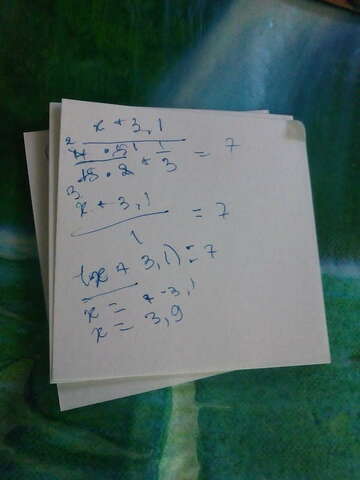 x + 3,1
2 1 1
4 · 5 / 15 · 2 + 1/3 = 7
3
x + 3,1 / 1 = 7
(x + 3,1) = 7
x = 7 - 3,1
x = 3,9